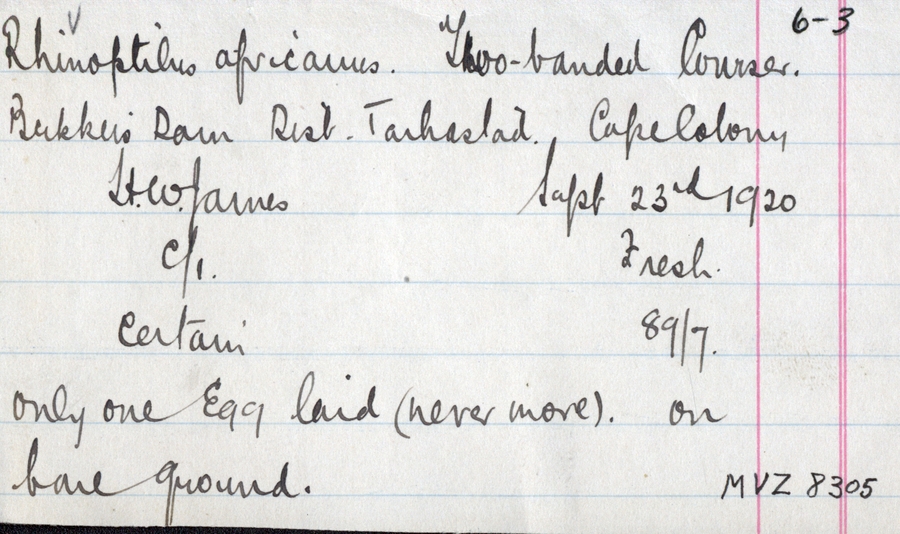 6-3
Rhinoptilus africanus. Two-banded Courser.
Bekkers Dam Dist. Tarkastad. Cape Colony
H.W. James Sept 23rd 1920
C/1. Fresh.
Certain 89/7.
only one Egg laid (never more). on
bare ground.
MVZ 8305